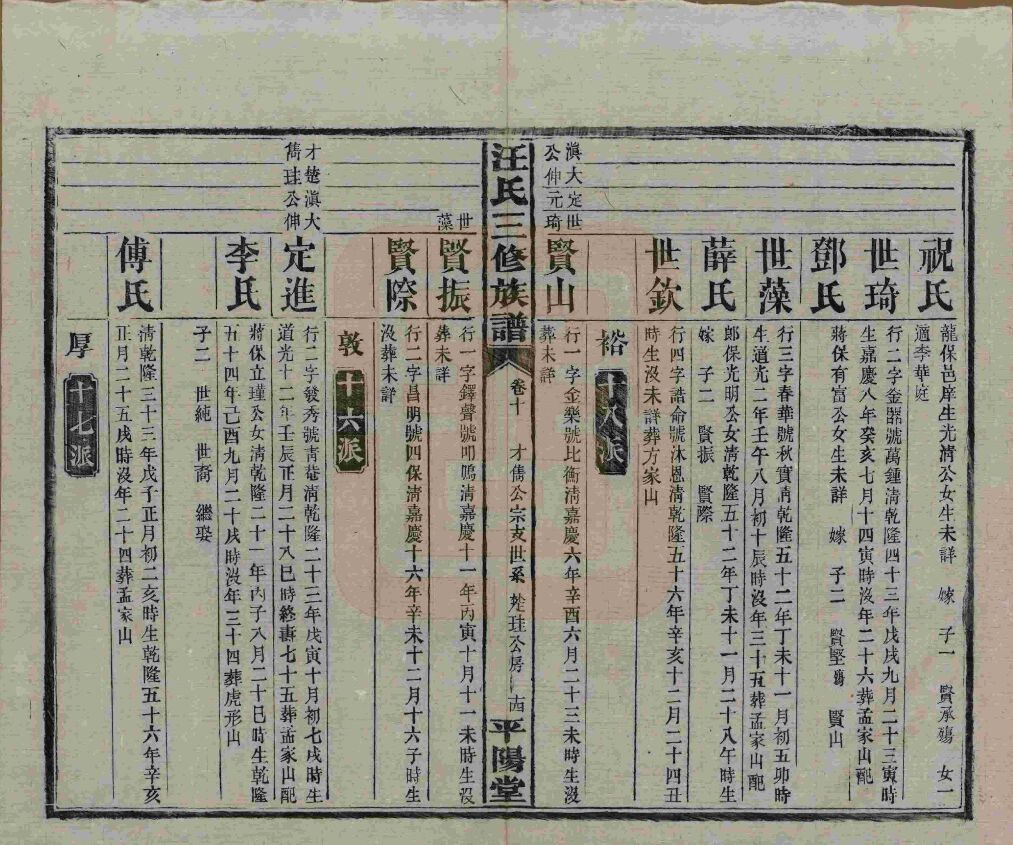 祝氏
龍保邑庠生光清公女生未詳 嫁 子一 賢承殤 女一
適李華庭
世琦
行二字金器號萬鍾清乾隆四十三年戊戌九月二十三寅時
生嘉慶八年癸亥七月十四寅時沒年二十六葬孟家山配
鄧氏
蔣保有富公女生未詳 嫁 子二 賢堅殤 賢山
世藻
行三字春華號秋實清乾隆五十二年丁未十一月初五卯時
生道光二年壬午八月初十辰時沒年三十五葬孟家山配
薛氏
郎保光明公女清乾隆五十二年丁未十一月二十八午時生
嫁 子二 賢振 賢際
世欽
行四字誥命號沐恩清乾隆五十六年辛亥十二月二十四丑
時生沒未詳葬方家山
裕 十八派
滇大定世
公伸元琦
賢山
行一字金樂號比衡清嘉慶六年辛酉六月二十三未時生沒
葬未詳
汪氏三修族譜 卷十 才雋公宗支世系 楚珪公房 平陽堂
世
藻
賢振
行一字鐸聲號叩鳴清嘉慶十一年丙寅十月十一未時生沒
葬未詳
賢際
行二字昌明號四保清嘉慶十六年辛未十二月十六子時生
沒葬未詳
敦 十六派
才楚滇大
雋珪公伸
定進
行二字發秀號靑菴清乾隆二十三年戊寅十月初七戌時生
道光十二年壬辰正月二十八巳時終壽七十五葬孟家山配
李氏
蔣保立瑾公女清乾隆二十一年丙子八月二十巳時生乾隆
五十四年己酉九月二十戌時沒年三十四葬虎形山
子二 世純 世裔 繼娶
傅氏
清乾隆三十三年戊子正月初二亥時生乾隆五十六年辛亥
正月二十五戌時沒年二十四葬孟家山
厚 十七派